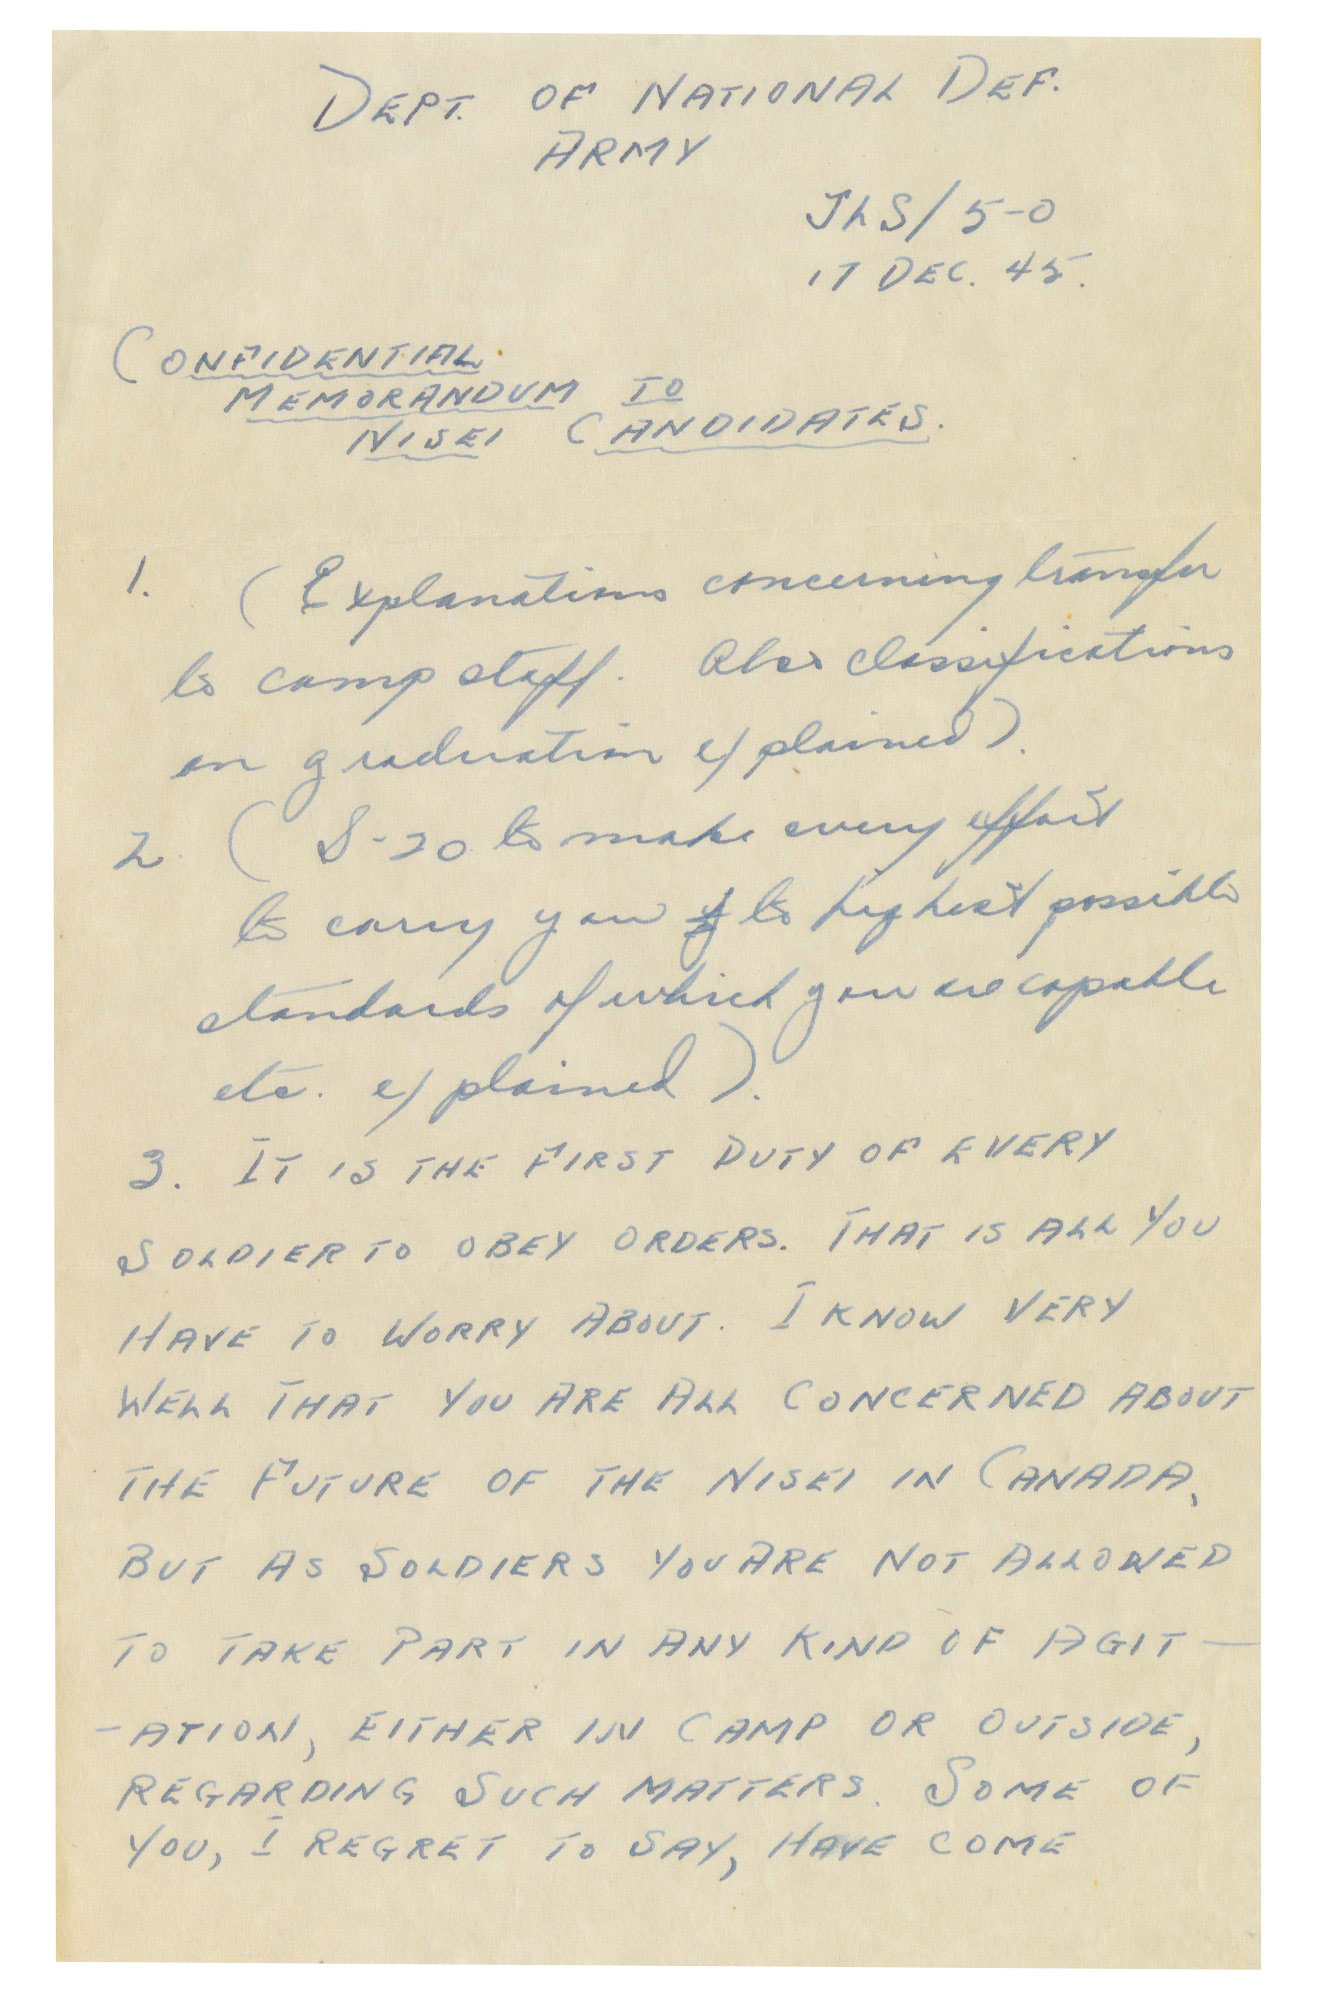 DEPT. OF NATIONAL DEF.
ARMY
JLS/5-0
17 DEC. 45.
CONFIDENTIAL
MEMORANDUM TO
NISEI CANDIDATES.
1. (Explanations concerning transfer
to camp staff. Also classifications
on graduation explained).
2. (S-20 to make every effort
to carry you to highest possible
standards of which you are capable
etc. explained).
3. IT IS THE FIRST DUTY OF EVERY
SOLDIER TO OBEY ORDERS. THAT IS ALL YOU
HAVE TO WORRY ABOUT. I KNOW VERY
WELL THAT YOU ARE ALL CONCERNED ABOUT
THE FUTURE OF THE NISEI IN CANADA,
BUT AS SOLDIERS YOU ARE NOT ALLOWED
TO TAKE PART IN ANY KIND OF AGIT-
-ATION, EITHER IN CAMP OR OUTSIDE,
REGARDING SUCH MATTERS. SOME OF
YOU, I REGRET TO SAY, HAVE COME